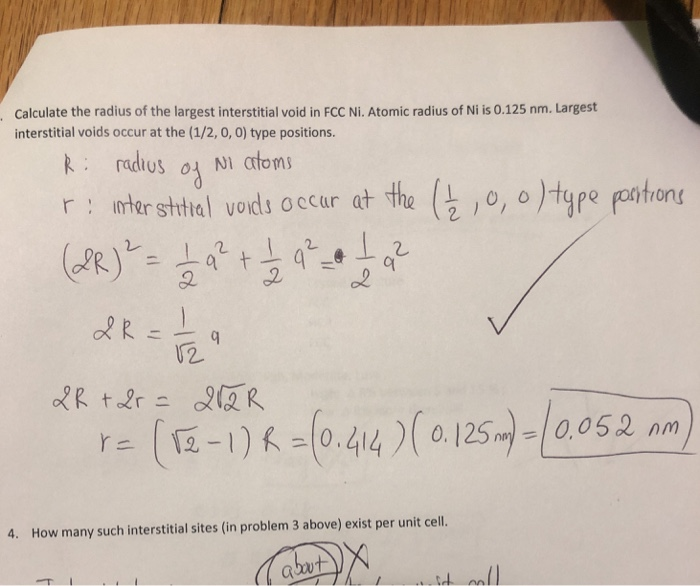 Calculate the radius of the largest interstitial void in FCC Ni. Atomic radius of Ni is 0.125 nm. Largest
interstitial voids occur at the (1/2, 0, 0) type positions.
R: radius of Ni atoms
r: interstitial voids occur at the (1/2, 0, 0) type positions
(2R)² = 1/2 a² + 1/2 a² = 1/2 a²
2R = 1/√2 a
2R + 2r = 2√2 R
r = (√2 - 1) R = (0.414)(0.125 nm) = 0.052 nm
4. How many such interstitial sites (in problem 3 above) exist per unit cell.
about X